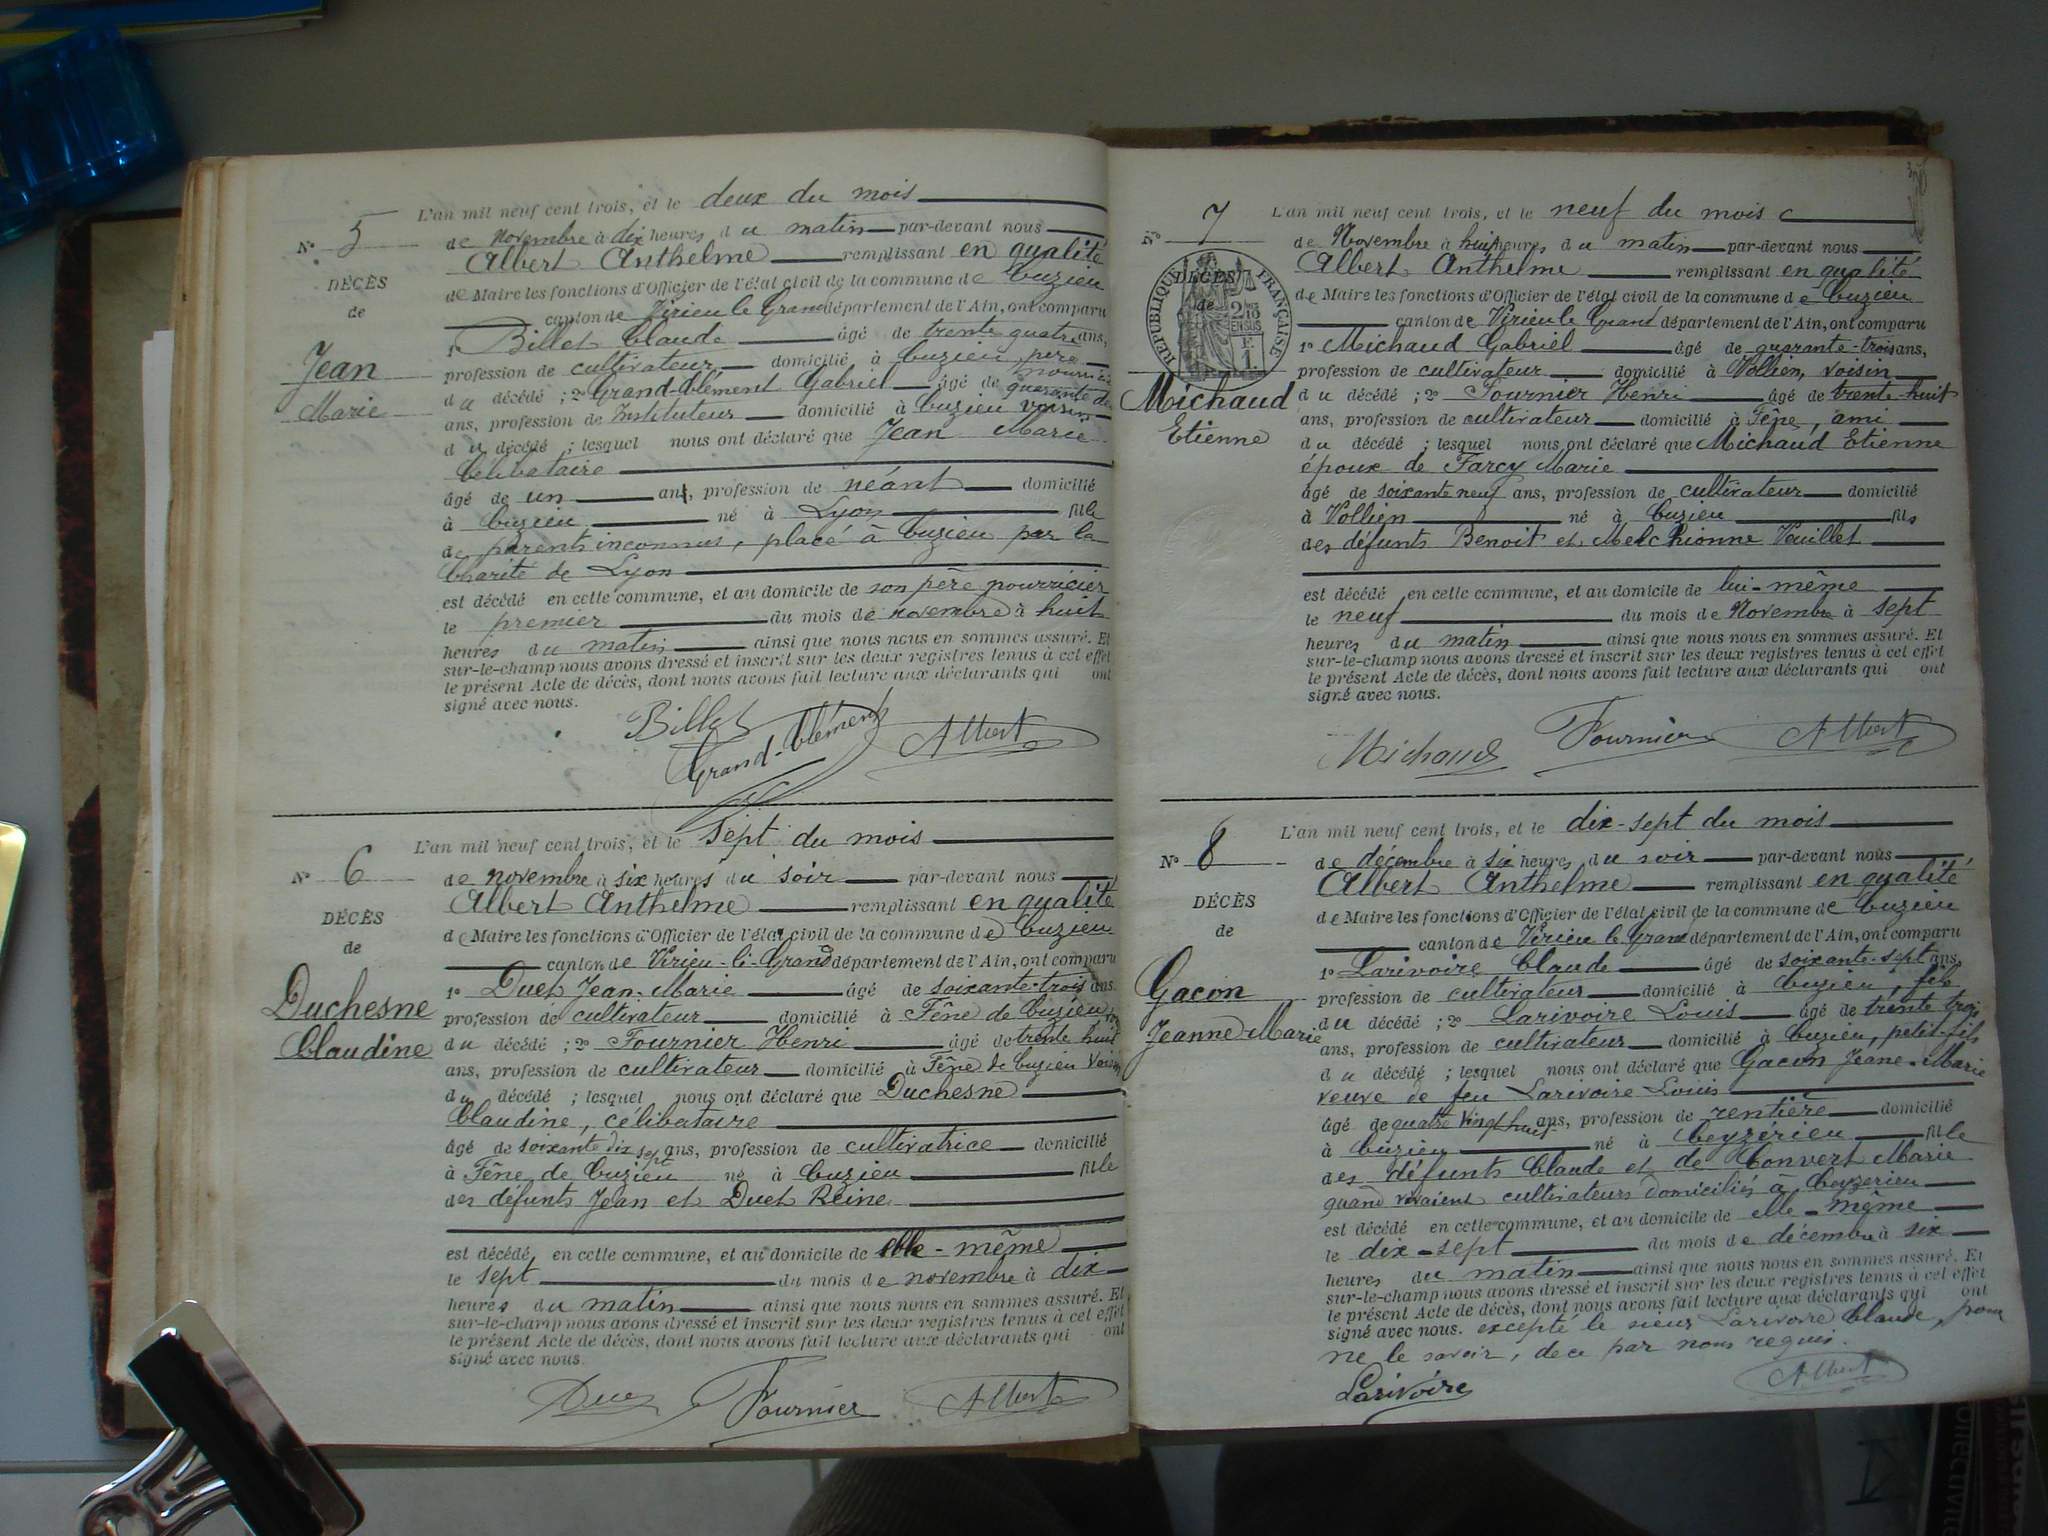 L'an mil neuf cent trois, et le deux du mois
N° 5 de novembre à dix heures du matin par-devant nous
Albert Anthelme remplissant en qualité
DÉCÈS
de Maire les fonctions d'Officier de l'état civil de la commune de Cuzieu
de
canton de Virieu le Grand département de l'Ain, ont comparu
1° Billet Claude âgé de trente quatre ans,
Jean
profession de cultivateur domicilié à Cuzieu, père nourricier
Marie
du décédé ; 2° Grand-Clément Gabriel âgé de quarante
ans, profession de Instituteur domicilié à Cuzieu voisin
du décédé ; lesquel nous ont déclaré que Jean Marie
Célibataire
âgé de un an, profession de néant domicilié
à Cuzieu né à Lyon fils
de parents inconnus, placé à Cuzieu par la
Charité de Lyon
est décédé en cette commune, et au domicile de son père nourricier
le premier du mois de novembre à huit
heures du matin ainsi que nous nous en sommes assuré. Et
sur-le-champ nous avons dressé et inscrit sur les deux registres tenus à cet effet
le présent Acte de décès, dont nous avons fait lecture aux déclarants qui ont
signé avec nous.
Billet Grand-Clément Albert
L'an mil neuf cent trois, et le sept du mois
N° 6 de novembre à six heures du soir par-devant nous
Albert Anthelme remplissant en qualité
DÉCÈS
de Maire les fonctions d'Officier de l'état civil de la commune de Cuzieu
de
canton de Virieu-le-Grand département de l'Ain, ont comparu
Duchesne
1° Duet Jean-Marie âgé de soixante-trois ans
profession de cultivateur domicilié à Fêne de Cuzieu
Claudine
du décédé ; 2° Fournier Henri âgé de trente huit
ans, profession de cultivateur domicilié à Fêne de Cuzieu voisin
du décédé ; lesquel nous ont déclaré que Duchesne
Claudine, célibataire
âgé de soixante dix sept ans, profession de cultivatrice domicilié
à Fêne de Cuzieu né à Cuzieu fille
des défunts Jean et Duet Reine
est décédé en cette commune, et au domicile de elle-même
le sept du mois de novembre à dix
heures du matin ainsi que nous nous en sommes assuré. Et
sur-le-champ nous avons dressé et inscrit sur les deux registres tenus à cet effet
le présent Acte de décès, dont nous avons fait lecture aux déclarants qui ont
signé avec nous.
Duet Fournier Albert
L'an mil neuf cent trois, et le neuf du mois
N° 7 de Novembre à huit heures du matin par-devant nous
Albert Anthelme remplissant en qualité
DÉCÈS
de
RÉPUBLIQUE FRANÇAISE
2/10 EN SUS
F. 1.
de Maire les fonctions d'Officier de l'état civil de la commune de Cuzieu
canton de Virieu le Grand département de l'Ain, ont comparu
1° Michaud Gabriel âgé de quarante-trois ans,
profession de cultivateur domicilié à Vollien, voisin
Michaud
du décédé ; 2° Fournier Henri âgé de trente-huit
ans, profession de cultivateur domicilié à Fêne, ami
Etienne
du décédé ; lesquel nous ont déclaré que Michaud Etienne
époux de Farcy Marie
âgé de soixante neuf ans, profession de cultivateur domicilié
à Vollien né à Cuzieu fils
des défunts Benoit et Melchionne Veuillet
est décédé en cette commune, et au domicile de lui-même
le neuf du mois de Novembre à sept
heures du matin ainsi que nous nous en sommes assuré. Et
sur-le-champ nous avons dressé et inscrit sur les deux registres tenus à cet effet
le présent Acte de décès, dont nous avons fait lecture aux déclarants qui ont
signé avec nous.
Michaud Fournier Albert
L'an mil neuf cent trois, et le dix-sept du mois
N° 8 de décembre à six heures du soir par-devant nous
Albert Anthelme remplissant en qualité
DÉCÈS
de Maire les fonctions d'Officier de l'état civil de la commune de Cuzieu
de
canton de Virieu le Grand département de l'Ain, ont comparu
1° Larivoire Claude âgé de soixante-sept ans,
Gacon
profession de cultivateur domicilié à Cuzieu, fils
du décédé ; 2° Larivoire Louis âgé de trente trois
Jeanne Marie
ans, profession de cultivateur domicilié à Cuzieu, petit-fils
du décédé ; lesquel nous ont déclaré que Gacon Jeane-Marie
veuve de feu Larivoire Louis
âgé de quatre vingt huit ans, profession de rentière domicilié
à Cuzieu né à Ceyzérieu fille
des défunts Claude et de Convert Marie
quand vivaient cultivateurs domiciliés à Ceyzerieu
est décédé en cette commune, et au domicile de elle-même
le dix-sept du mois de décembre à six
heures du matin ainsi que nous nous en sommes assuré. Et
sur-le-champ nous avons dressé et inscrit sur les deux registres tenus à cet effet
le présent Acte de décès, dont nous avons fait lecture aux déclarants qui ont
signé avec nous. excepté le sieur Larivoire Claude, pour
ne le savoir, de ce par nous requis.
Larivoire Albert